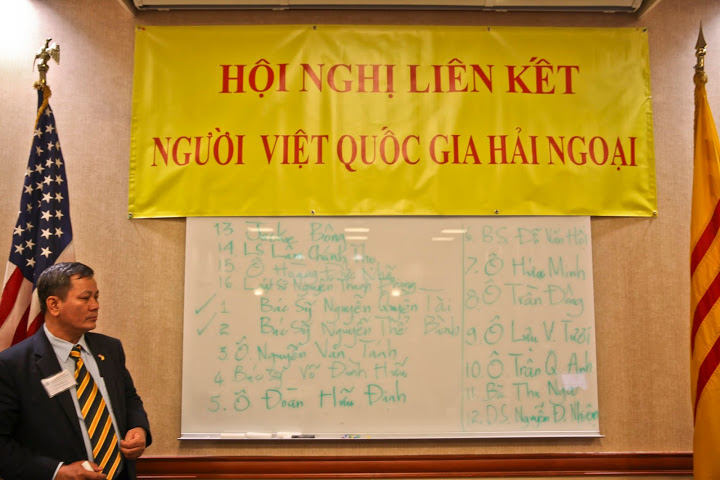 HỘI NGHỊ LIÊN KẾT
NGƯỜI VIỆT QUỐC GIA HẢI NGOẠI
13 Bông
14 LS Lâm Chánh
15 Ô Hoàng
16 Luật Sư Nguyễn Thanh
✓ 1 Bác Sỹ Nguyễn Quyền Tài
✓ 2 Bác Sỹ Nguyễn Thể Bình
3 Ô. Nguyễn Văn Tánh
4 Bác Sỹ Võ Đình Hữu
5. Ô. Đoàn Hữu Định
6. B.S. Đỗ Văn Hội
7. Ô Hưng Minh
8. Ô Trần Đông
9. Ô Lưu V. Tươi
10. Ô Trần Q. Anh
11. Bà Thu
12. D.S. Nguyễn Đ. Nhiệm